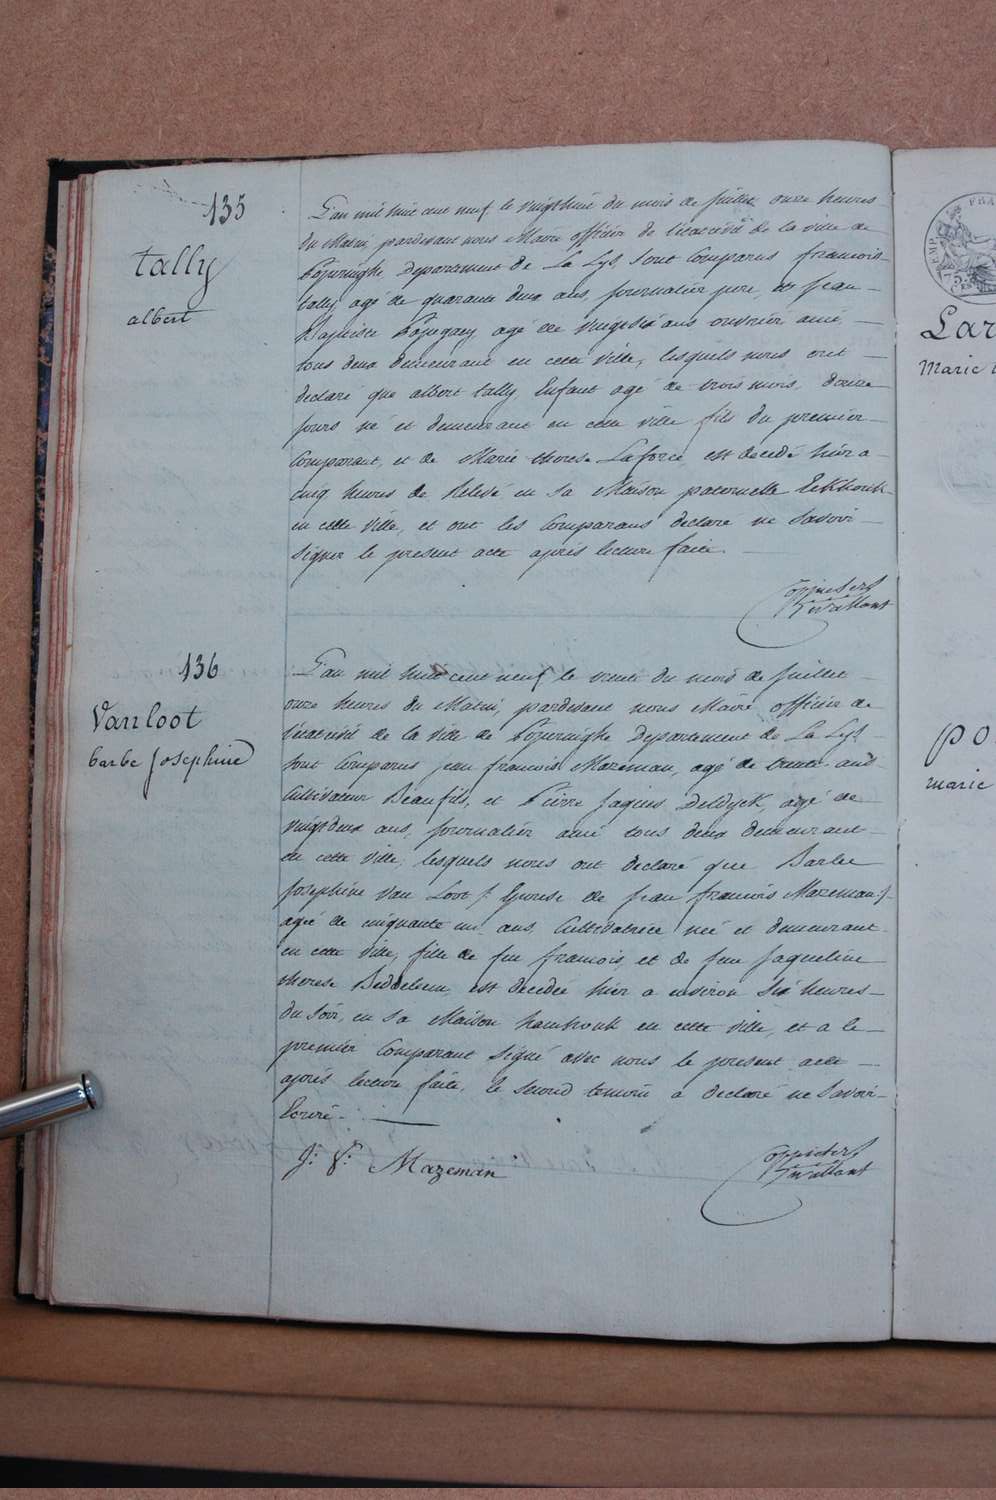 135
tally
albert
L'an mil huit cent neuf le vingthuit du mois de juillet onze heures
du Matin, pardevant nous Maire officier de l'état civil de la ville de
Departement de La Lys, sont Comparus francois
tally agé de quarante deux ans, journalier pere et jean
Baptiste agé de ans ouvrier ami
tous deux demeurant en cette ville, lesquels nous ont
declaré que albert tally, Enfant agé de trois mois, douze
jours né et demeurant en cette ville fils du premier
Comparant, et de Marie therese Laforce est decedé hier a
cinq heures de Relevé en sa Maison paternelle Eekhouk
en cette ville, et ont les Comparans declaré ne Savoir
signer le present acte après lecture faite.
136
Vanloot
barbe Josephine
L'an mil huit cent neuf le trente du mois de juillet
onze heures du Matin, pardevant nous Maire officier de
l'état civil de la ville de Departement de La Lys
sont Comparus jean francois Mazeman, agé de trente ans
Cultivateur Beaufils, et Pierre Jaques Deldyck, agé de
vingt deux ans, journalier ami tous deux demeurant
en cette ville, lesquels nous ont declaré que Barbe
Josephine Van Loot /: Epouse de jean francois Mazeman :/
agée de cinquante un ans, Cultivatrice née et demeurant
en cette ville, fille de feu francois, et de feue Jaqueline
therese est decedée hier a environ Six heures
du Soir, en sa Maison hamhouk en cette ville, et a le
premier Comparant Signé avec nous le present acte
après lecture faite, le second temoin a declaré ne Savoir
Ecrire.
J: F: Mazeman
Lar
Marie
po
marie